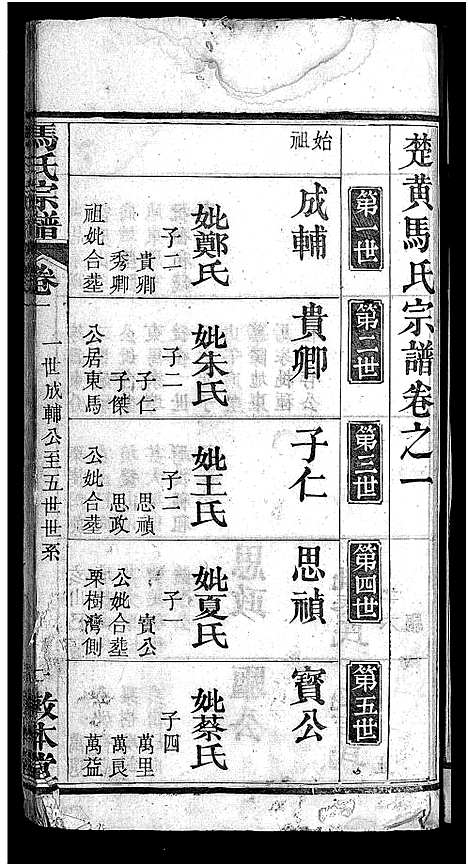 楚黄馬氏宗譜卷之一
第一世
第二世
第三世
第四世
第五世
始祖
成輔
妣鄭氏
子二
貴卿
秀卿
祖妣合塟
貴卿
妣朱氏
子二
子仁
子傑
公居東馬
子仁
妣王氏
子二
思禎
思政
公妣合塟
思禎
妣夏氏
子一
寳公
公妣合塟
栗樹灣側
寳公
妣蔡氏
子四
萬里
萬良
萬益
馬氏宗譜
卷一
一世成輔公至五世世系
一
敦本堂